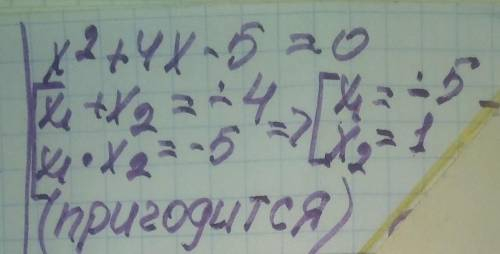 x² + 4x - 5 = 0
[x₁ + x₂ = -4
x₁ · x₂ = -5 => [x₁ = -5
x₂ = 1
(пригодится)